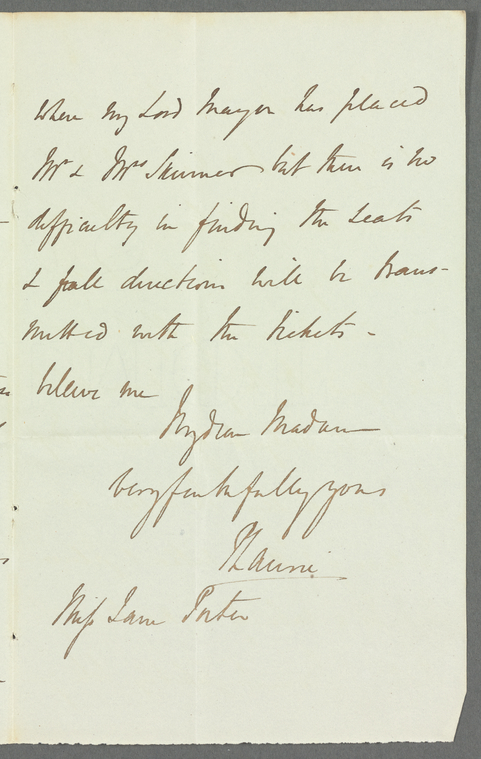 where my Lord Mayor has placed
Mr & Mrs Skinner but there is no
difficulty in finding the seats
& full directions will be trans-
mitted with the tickets -
believe me
My dear Madam
very faithfully yours
Miss Jane Porter